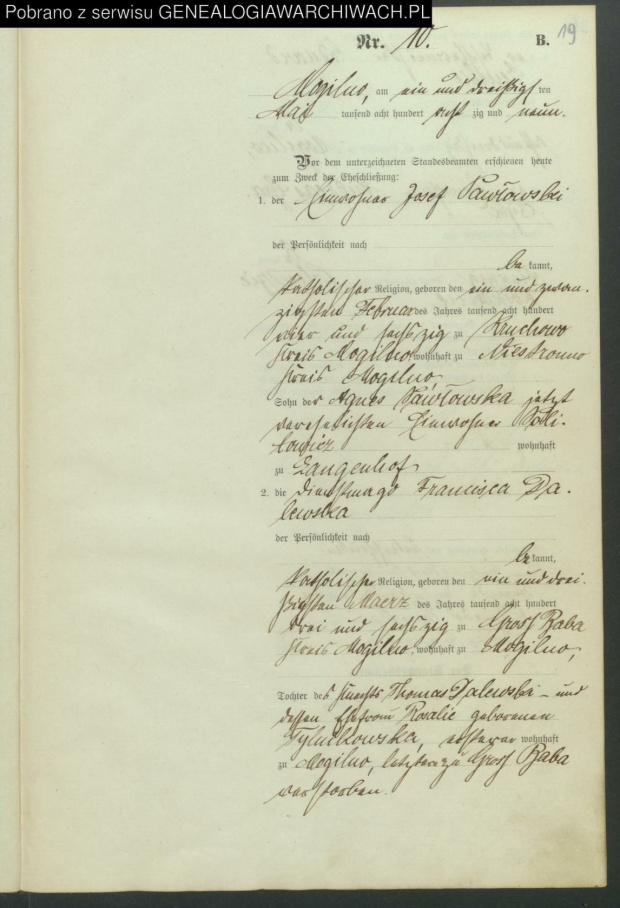 Pobrano z serwisu GENEALOGIAWARCHIWACH.PL
19
Nr. 10. B.
Mogilno, am ein und dreißigsten
Mai tausend acht hundert acht zig und neun.
Vor dem unterzeichneten Standesbeamten erschienen heute
zum Zweck der Eheschließung:
1. der Einwohner Josef Pawłowski
der Persönlichkeit nach
be kannt,
katholischer Religion, geboren den ein und zwan-
zigsten Februar des Jahres tausend acht hundert
vier und sechs zig zu Kruchowo
Kreis Mogilno, wohnhaft zu Niestronno
Kreis Mogilno
Sohn der Agnes Pawłowska jetzt
verehelichten Einwohner
wohnhaft
zu Langenhof
2. die Dienstmagd Francisca Da-
lewska
der Persönlichkeit nach
be kannt,
katholischer Religion, geboren den ein und drei-
ßigsten Maerz des Jahres tausend acht hundert
drei und sechs zig zu Gross Baba
Kreis Mogilno, wohnhaft zu Mogilno,
Tochter des Knechts Thomas Dalewski - und
dessen Ehefrau Rosalie geborenen
Tylmikowska, ersterer wohnhaft
zu Mogilno, letztere zu Gross Baba
verstorben.